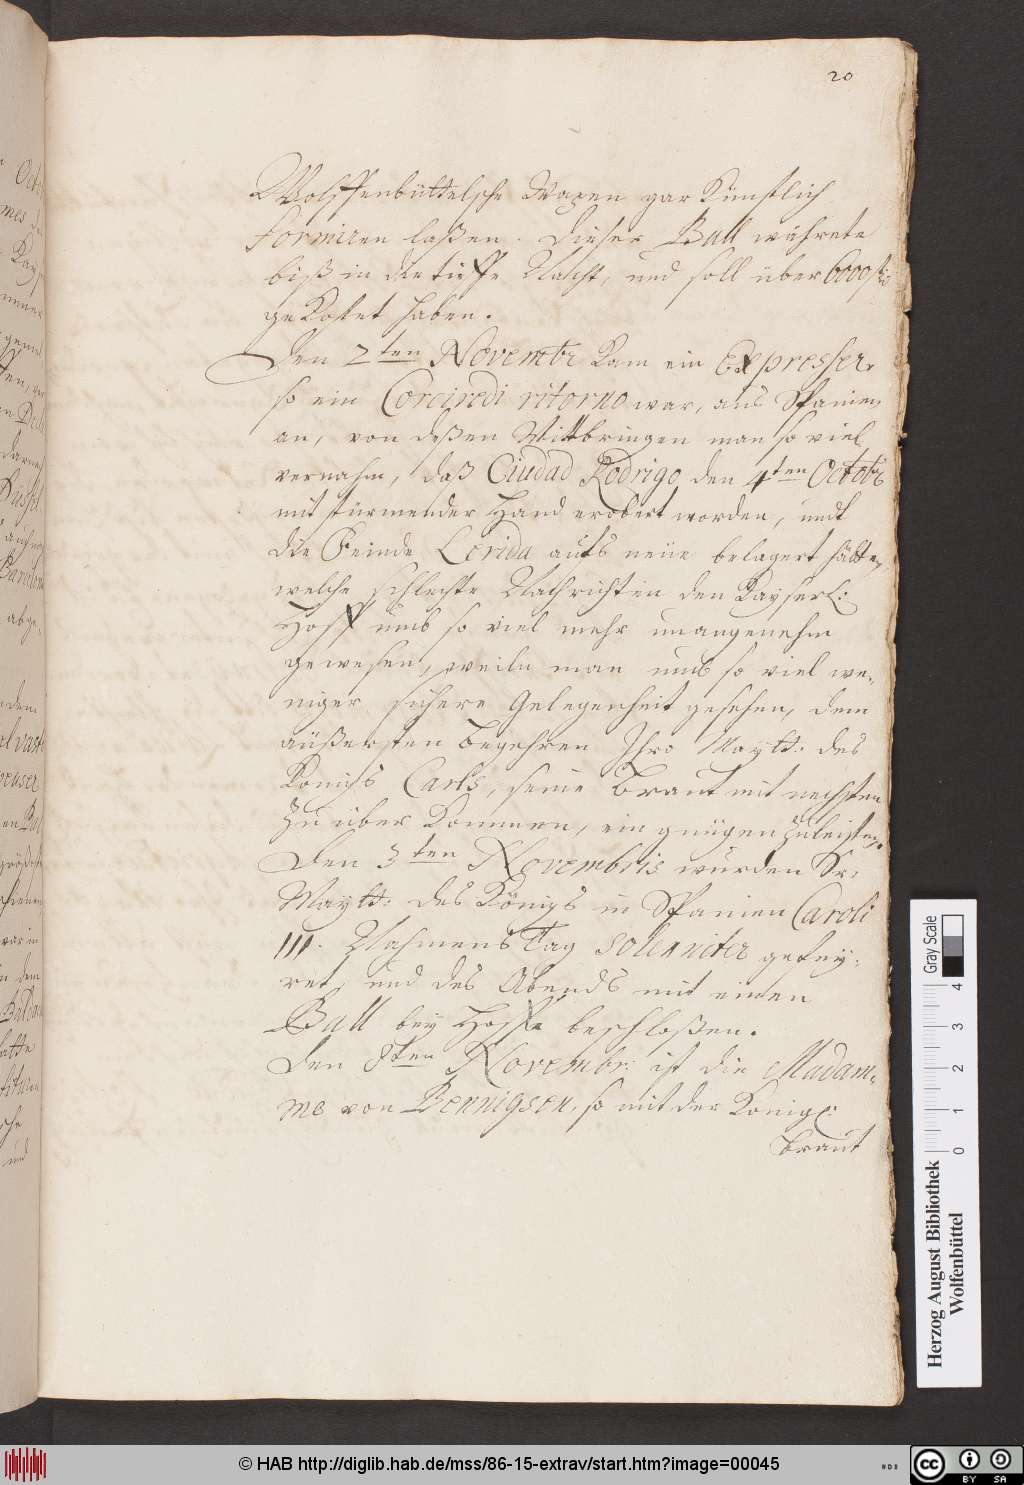 20
Wolffenbüttelsche Wapen gar Künstlich
formiren laßen. Dieser Ball währete
biß in die tieffe Nacht, und soll über 6000
gekostet haben.
Den 2ten Novembr kam ein Expresser,
so ein di ritorno war, aus Spanien
an, von deßen Mittbringen man so viel
vernahm, daß Ciudad Rodrigo den 4ten Octobr
mit stürmender Hand erobert worden, undt
die Feinde Lerida aufs neüe belagert hätten,
welche schlechte Nachrichten den Kayserl:
Hoff umb so viel mehr unangenehm
gewesen, weiln man umb so viel we-
niger sichere Gelegenheit gesehen, dem
äußersten Begehren Ihro Maytt: des
Königs Carls, seine Braut mit nechsten
zu über kommen, ein gnügen zuleisten.
Den 3ten Novembris wurden Sr:
Maytt: des Königs in Spanien Caroli
III. Nahmens Tag solenniter gefey-
ret, und des Abends mit einen
Ball bey Hoffe beschloßen.
Den 8ten Novembr: ist die Madam-
me von Bennigsen, so mit der Königl:
Braut
Herzog August Bibliothek
Wolfenbüttel
Gray Scale
0 1 2 3 4
© HAB http://diglib.hab.de/mss/86-15-extrav/start.htm?image=00045
cc BY SA